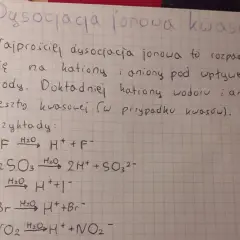 Dysocjacja jonowa kwas
ajprościej dysocjacja jonowa to rozpad
się na kationy i aniony pod wpływe
ody. Dokładniej kationy wodoru i an
eszty kwasowej (w przypadku kwasów).
zykłady:
F H₂O→ H⁺ + F⁻
₂SO₃ H₂O→ 2H⁺ + SO₃²⁻
H₂O→ H⁺ + I⁻
Br H₂O→ H⁺ + Br⁻
NO₂ H₂O→ H⁺ + NO₂⁻